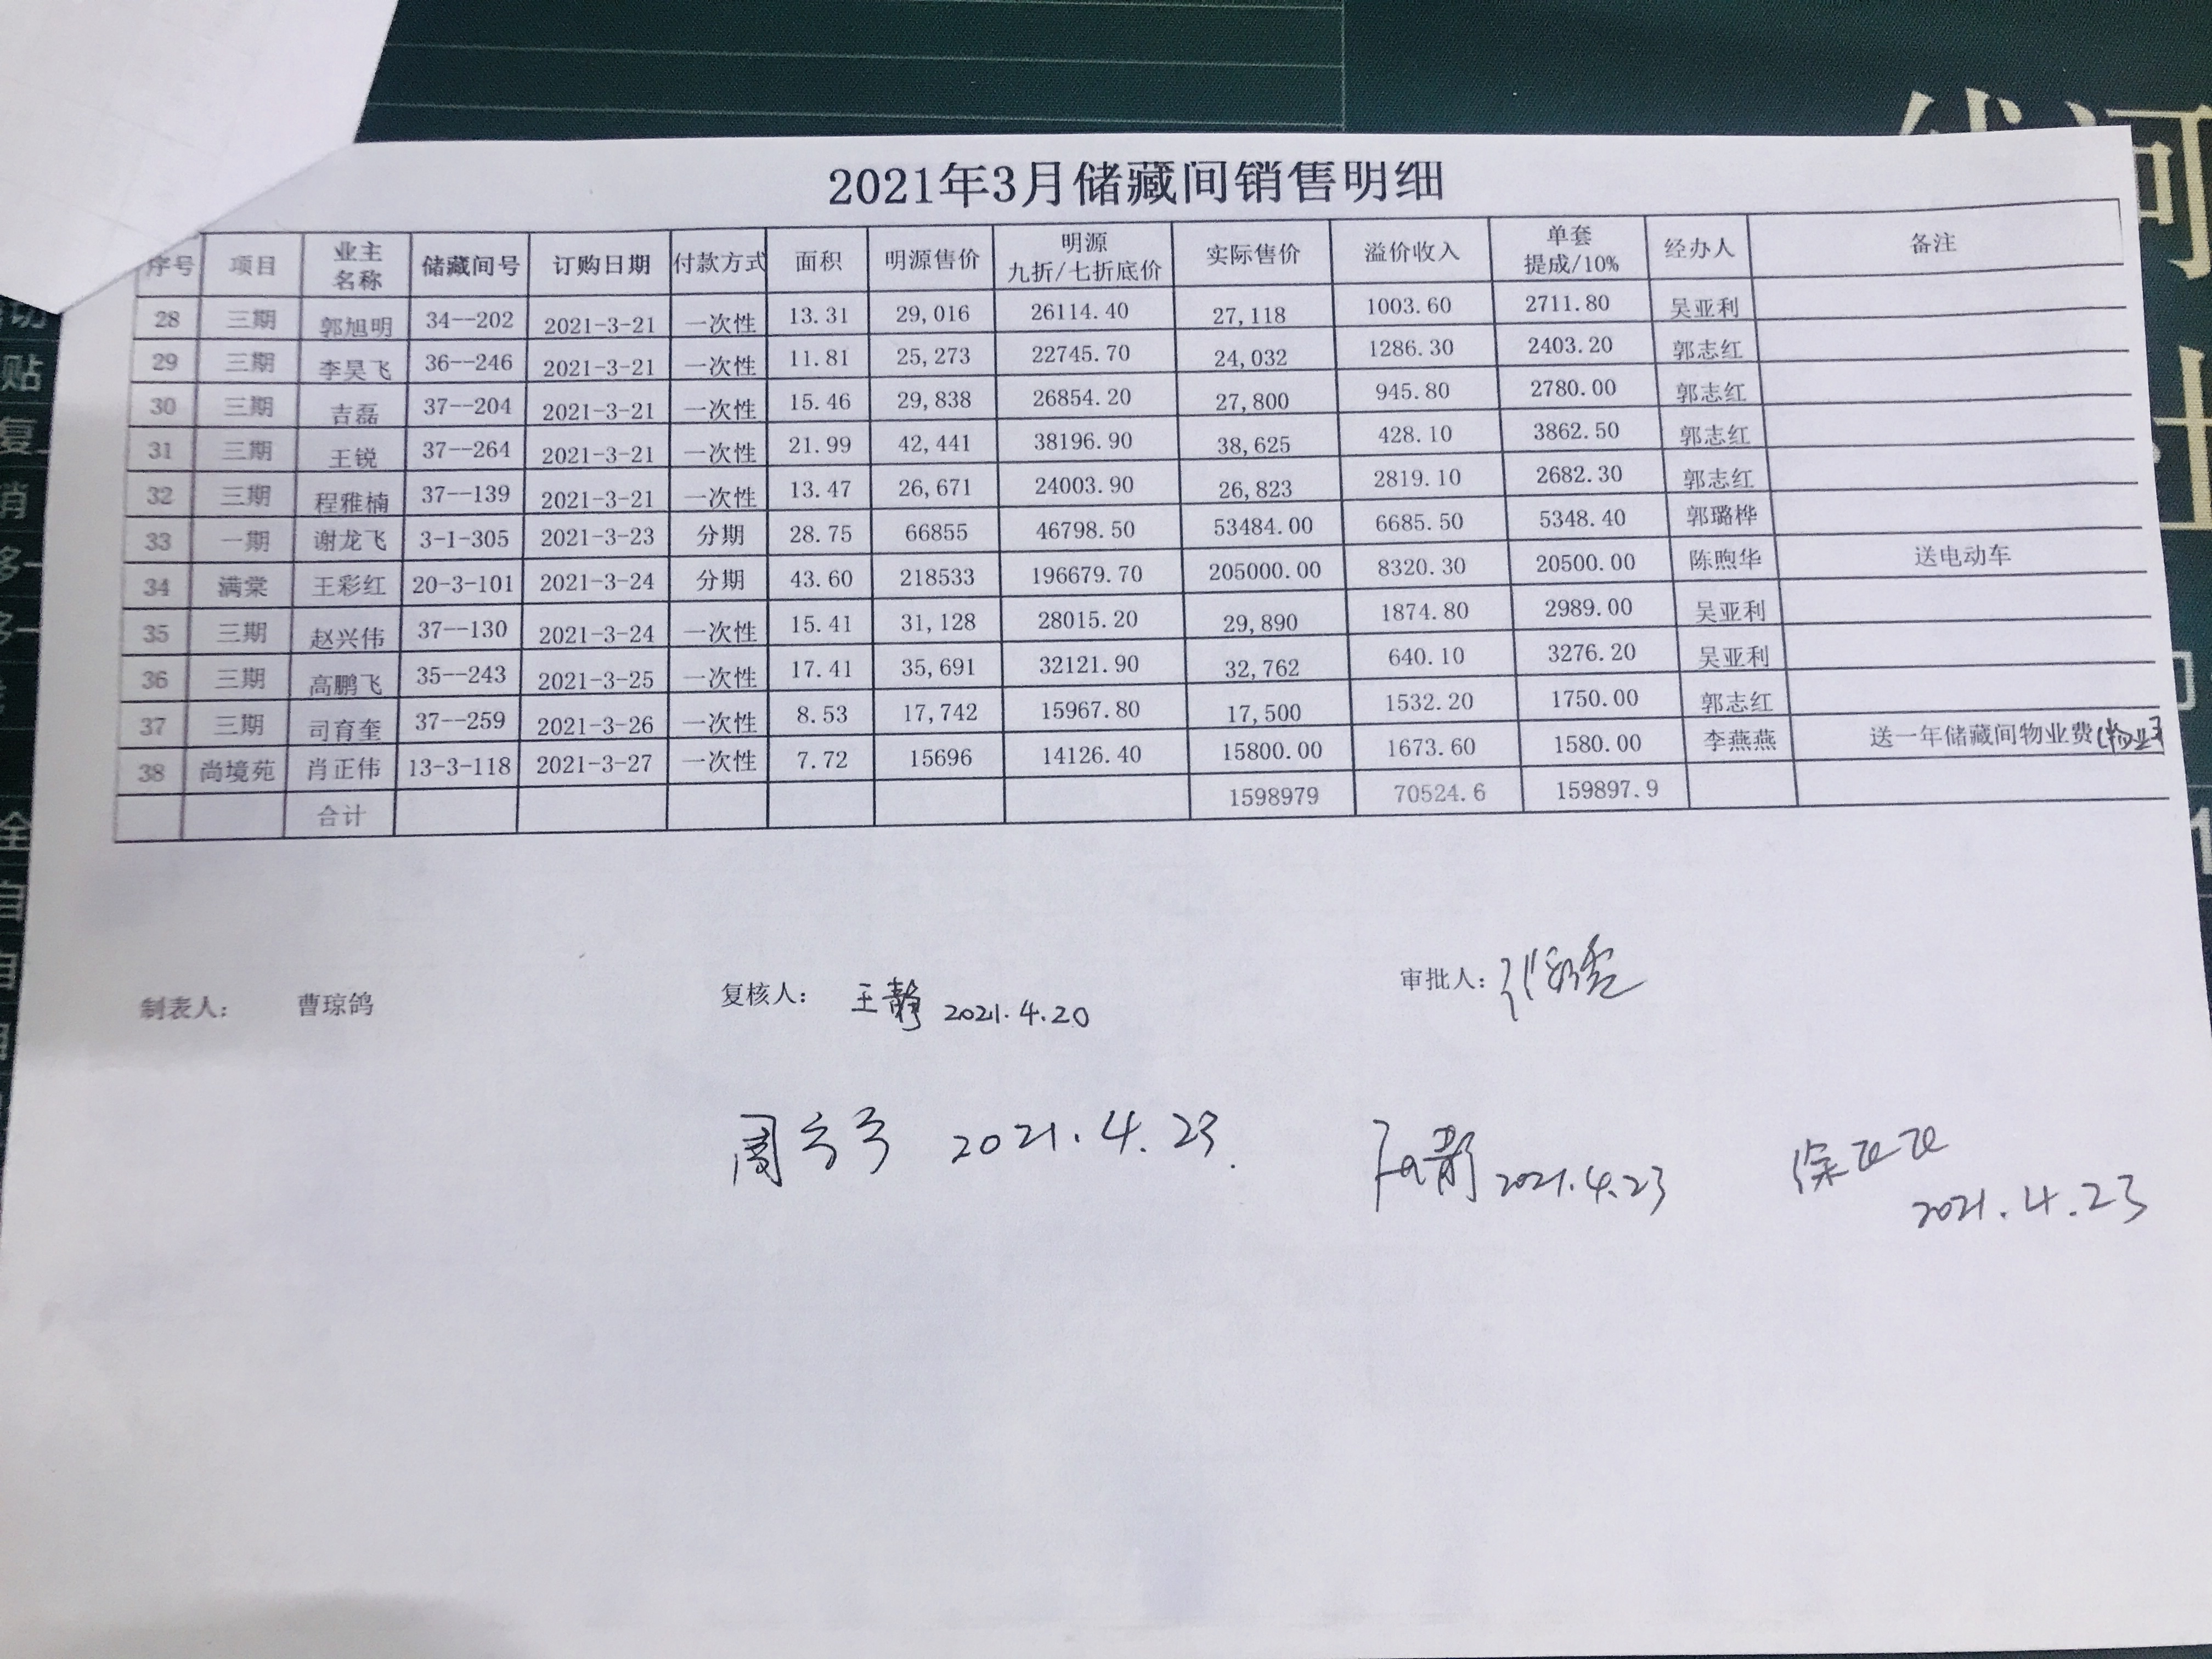 2021年3月储藏间销售明细
序号 项目 业主名称 储藏间号 订购日期 付款方式 面积 明源售价 明源九折/七折底价 实际售价 溢价收入 单套提成/10% 经办人 备注
28 三期 郭旭明 34--202 2021-3-21 一次性 13.31 29,016 26114.40 27,118 1003.60 2711.80 吴亚利
29 三期 李昊飞 36--246 2021-3-21 一次性 11.81 25,273 22745.70 24,032 1286.30 2403.20 郭志红
30 三期 吉磊 37--204 2021-3-21 一次性 15.46 29,838 26854.20 27,800 945.80 2780.00 郭志红
31 三期 王锐 37--264 2021-3-21 一次性 21.99 42,441 38196.90 38,625 428.10 3862.50 郭志红
32 三期 程雅楠 37--139 2021-3-21 一次性 13.47 26,671 24003.90 26,823 2819.10 2682.30 郭志红
33 一期 谢龙飞 3-1-305 2021-3-23 分期 28.75 66855 46798.50 53484.00 6685.50 5348.40 郭璐桦
34 满棠 王彩红 20-3-101 2021-3-24 分期 43.60 218533 196679.70 205000.00 8320.30 20500.00 陈煦华 送电动车
35 三期 赵兴伟 37--130 2021-3-24 一次性 15.41 31,128 28015.20 29,890 1874.80 2989.00 吴亚利
36 三期 高鹏飞 35--243 2021-3-25 一次性 17.41 35,691 32121.90 32,762 640.10 3276.20 吴亚利
37 三期 司育奎 37--259 2021-3-26 一次性 8.53 17,742 15967.80 17,500 1532.20 1750.00 郭志红
38 尚境苑 肖正伟 13-3-118 2021-3-27 一次性 7.72 15696 14126.40 15800.00 1673.60 1580.00 李燕燕 送一年储藏间物业费
合计 1598979 70524.6 159897.9
制表人： 曹琼鸽 复核人： 王静 2021.4.20 审批人：
2021.4.23. 2021.4.23
2021.4.23